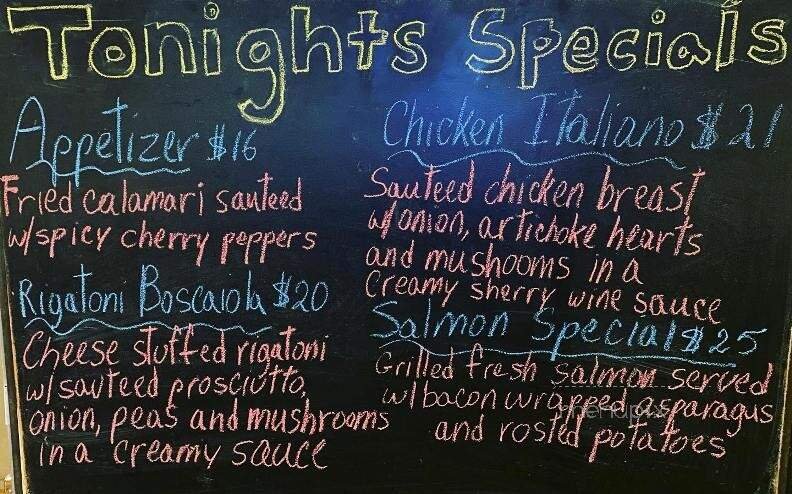 Tonights Specials
Appetizer $16
Fried calamari sauteed
w/spicy cherry peppers
Rigatoni Boscaiola $20
Cheese stuffed rigatoni
w/sauteed prosciutto,
onion, peas and mushrooms
in a creamy sauce
Chicken Italiano $21
Sauteed chicken breast
w/onion, artichoke hearts
and mushooms in a
creamy sherry wine sauce
Salmon Special $25
Grilled fresh salmon served
w/bacon wrapped asparagus
and rosted potatoes